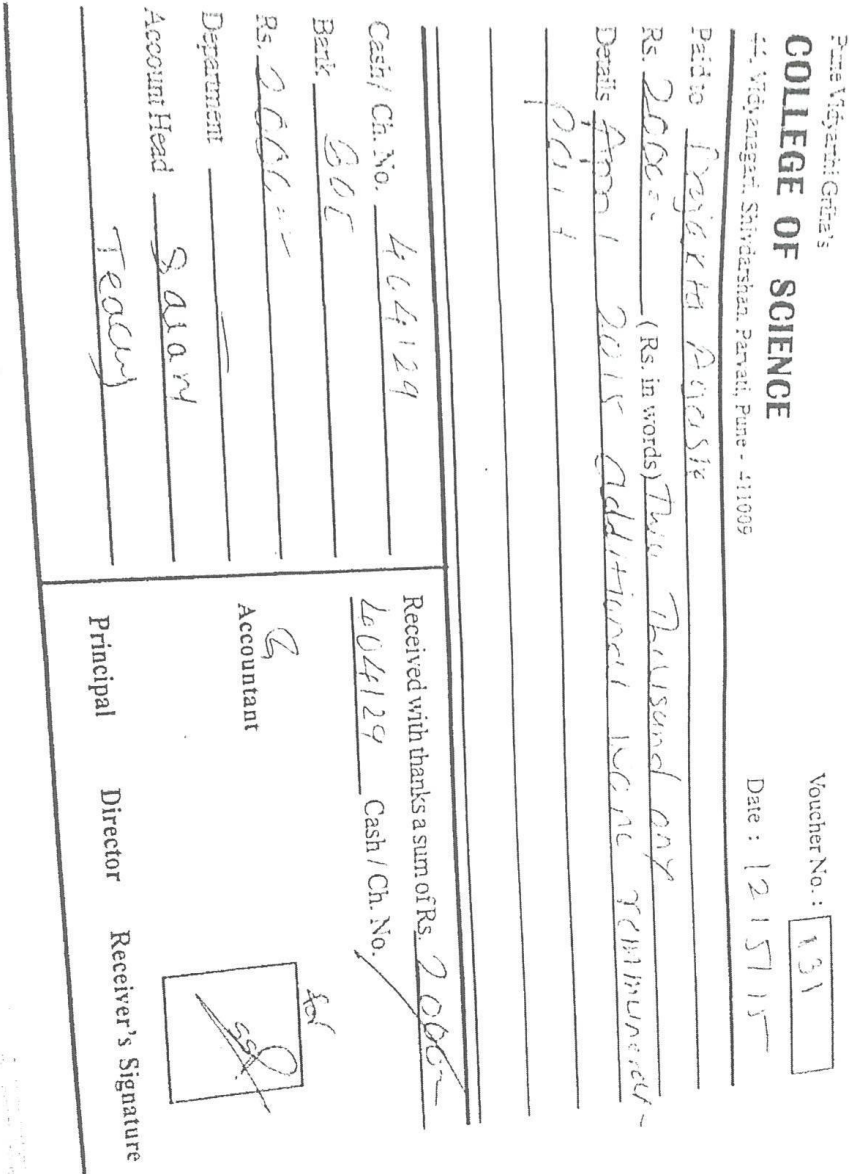 Pune Vidyarthi Griha's
COLLEGE OF SCIENCE
44, Vidyanagari, Shivdarshan, Parvati, Pune - 411009
Voucher No. : 131
Date : 12/5/15
Paid to
Rs. 2000=- (Rs. in words) Two Thousand only
Details April 2015 additional work remmunerati-
paid
Cash / Ch. No. 404129
Bank BOI
Rs. 2000=-
Department
Account Head Salary
Received with thanks a sum of Rs. 2000-
404129 Cash / Ch. No.
for
Accountant
Principal Director Receiver's Signature